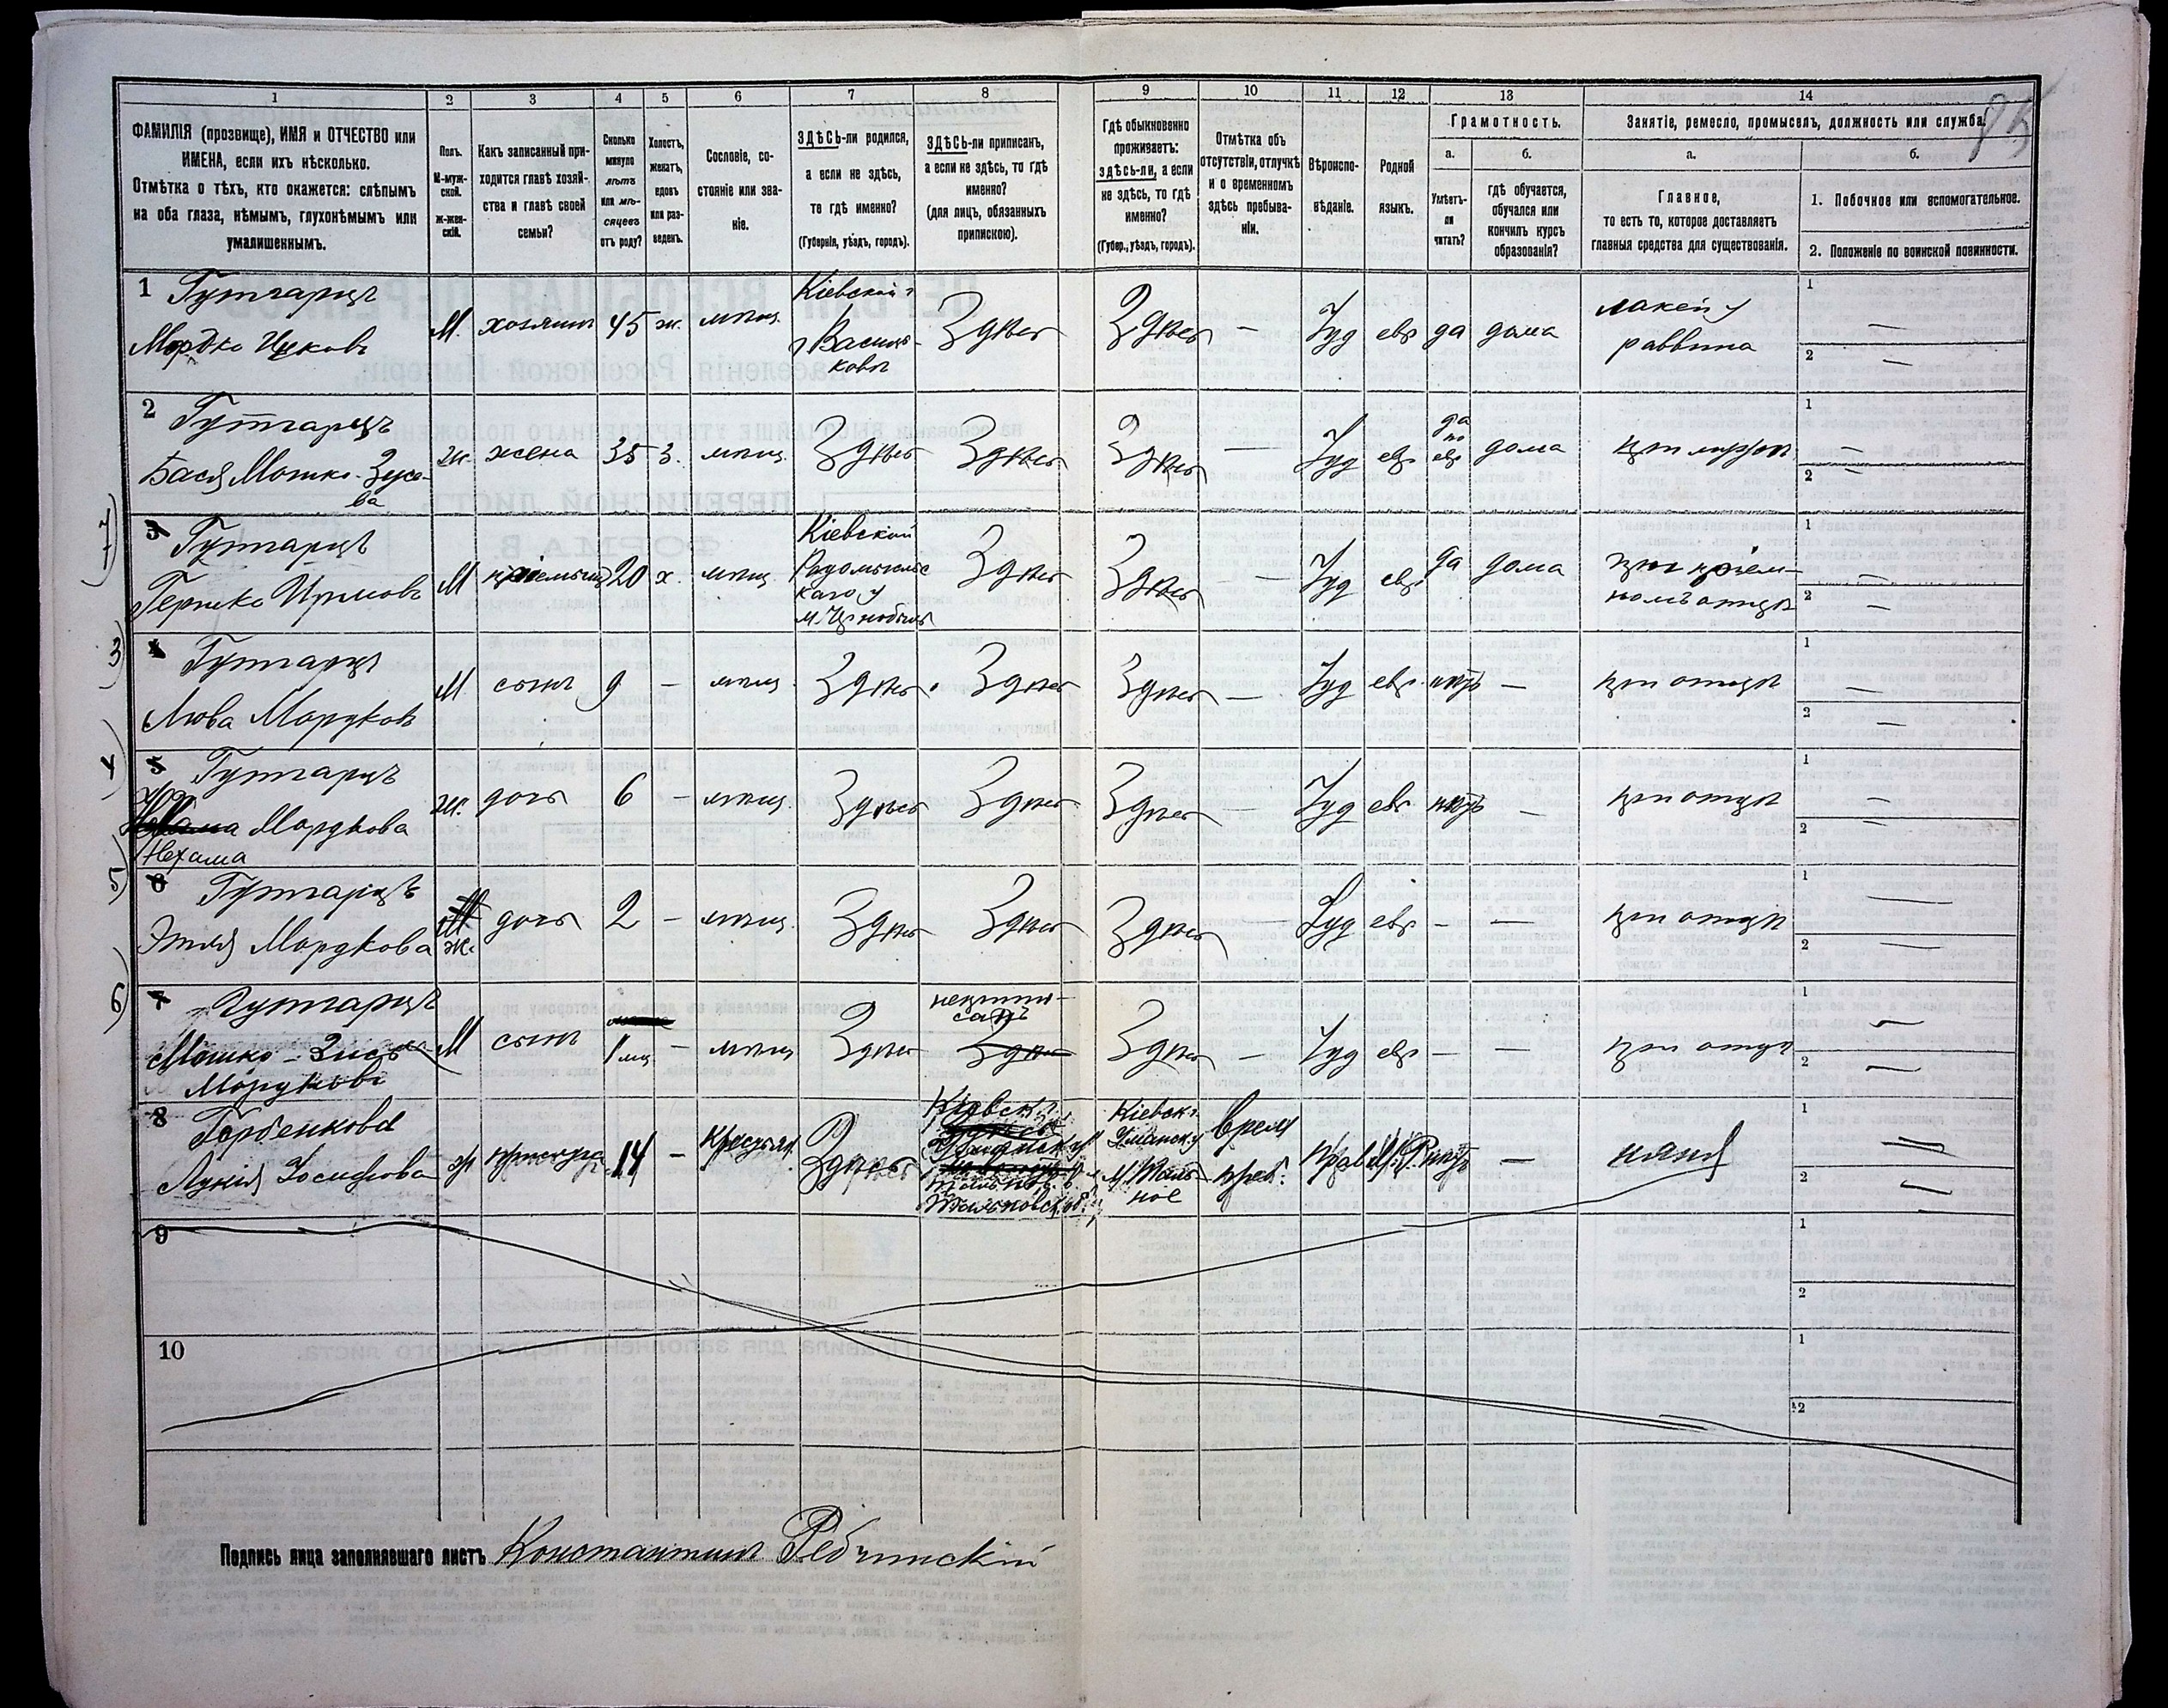 1 2 3 4 5 6 7 8 9 10 11 12 13 14
95
ФАМИЛІЯ (прозвище), ИМЯ и ОТЧЕСТВО или
ИМЕНА, если ихъ нѣсколько.
Отмѣтка о тѣхъ, кто окажется: слѣпымъ
на оба глаза, нѣмымъ, глухонѣмымъ или
умалишеннымъ.
Полъ.
М-муж-
ской.
ж-жен-
скій.
Какъ записанный при-
ходится главѣ хозяй-
ства и главѣ своей
семьи?
Сколько
минуло
лѣтъ
или мѣ-
сяцевъ
отъ роду?
Холостъ,
женатъ,
вдовъ
или раз-
веденъ.
Сословіе, со-
стояніе или зва-
ніе.
ЗДѢСЬ-ли родился,
а если не здѣсь,
то гдѣ именно?
(Губернія, уѣздъ, городъ).
ЗДѢСЬ-ли приписанъ,
а если не здѣсь, то гдѣ
именно?
(для лицъ, обязанныхъ
припискою).
Гдѣ обыкновенно
проживаетъ:
здѣсь-ли, а если
не здѣсь, то гдѣ
именно?
(Губер., уѣздъ, городъ).
Отмѣтка объ
отсутствіи, отлучкѣ
и о временномъ
здѣсь пребыва-
ніи.
Вѣроиспо-
вѣданіе.
Родной
языкъ.
Грамотность.
а.
Умѣетъ-
ли
читать?
б.
гдѣ обучается,
обучался или
кончилъ курсъ
образованія?
Занятіе, ремесло, промыселъ, должность или служба.
а.
Главное,
то есть то, которое доставляетъ
главныя средства для существованія.
б.
1. Побочное или вспомогательное.
2. Положеніе по воинской повинности.
1 Гутгарцъ
Мордко Ицковъ
М. хозяинъ 45 ж. мѣщ.
Кіевской г
г Василь-
ковъ
Здѣсь Здѣсь — Іуд евр да дома
лакей у
раввина
1 —
2 —
2 Гутгарцъ
Бася Мошко-Зусе-
ва
ж. жена 35 з. мѣщ. Здѣсь Здѣсь Здѣсь — Іуд евр
да
по
евр
дома при мужѣ
1 —
2 —
7)
3 Гутгарцъ
Гершко Ирмовъ
М пріемышъ 20 х. мѣщ.
Кіевской
Радомысльс
каго у
м. Чернобыль
Здѣсь Здѣсь — Іуд евр да дома
при пріем-
номъ отцѣ
1 —
2 —
3)
4 Гутгарцъ
Люва Мордковъ
М сынъ 9 — мѣщ. Здѣсь. Здѣсь Здѣсь — Іуд евр. нѣтъ — при отцѣ
1 —
2 —
4)
5 Гутгарцъ
Мордкова
Нехама
ж. дочь 6 — мѣщ. Здѣсь Здѣсь Здѣсь — Іуд евр нѣтъ — при отцѣ
1 —
2 —
5)
6 Гутгарцъ
Этля Мордкова
М
ж.
дочь 2 — мѣщ. Здѣсь Здѣсь Здѣсь — Іуд евр — — при отцѣ
1 —
2 —
6)
7 Гутгарцъ
Мошко-Зись
Мордковъ
М сынъ 1 мѣс — мѣщ Здѣсь
неприпи-
санъ
Здѣсь
Здѣсь — Іуд евр — — при отцѣ
1 —
2 —
8 Горбенкова
Лукія Іосифова
ж прислуга 14 — Крестьян. Здѣсь
Кіевск г.
Уманск у
Кіевск г.
Уманск. у
м. Таль-
ное
врем
преб.
Прав М.Р. нѣтъ — няня
1 —
2 —
9
1
2
10
1
2
Подпись лица заполнявшаго листъ Константинъ Ребчинскій